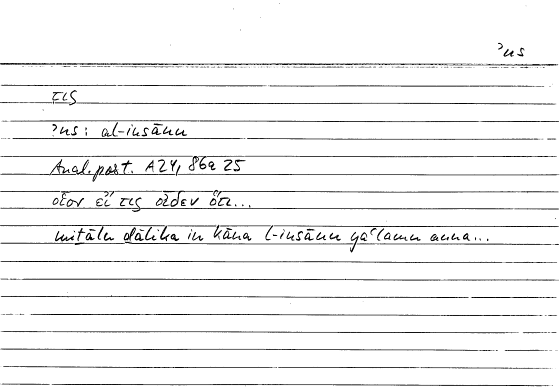 ʾns
τις
ʾns: al-insānu
Anal. post. A24, 86a 25
οἷον εἴ τις οἶδεν ὅτι...
miṯālu ḏālika in kāna l-insānu yaʿlamu anna...